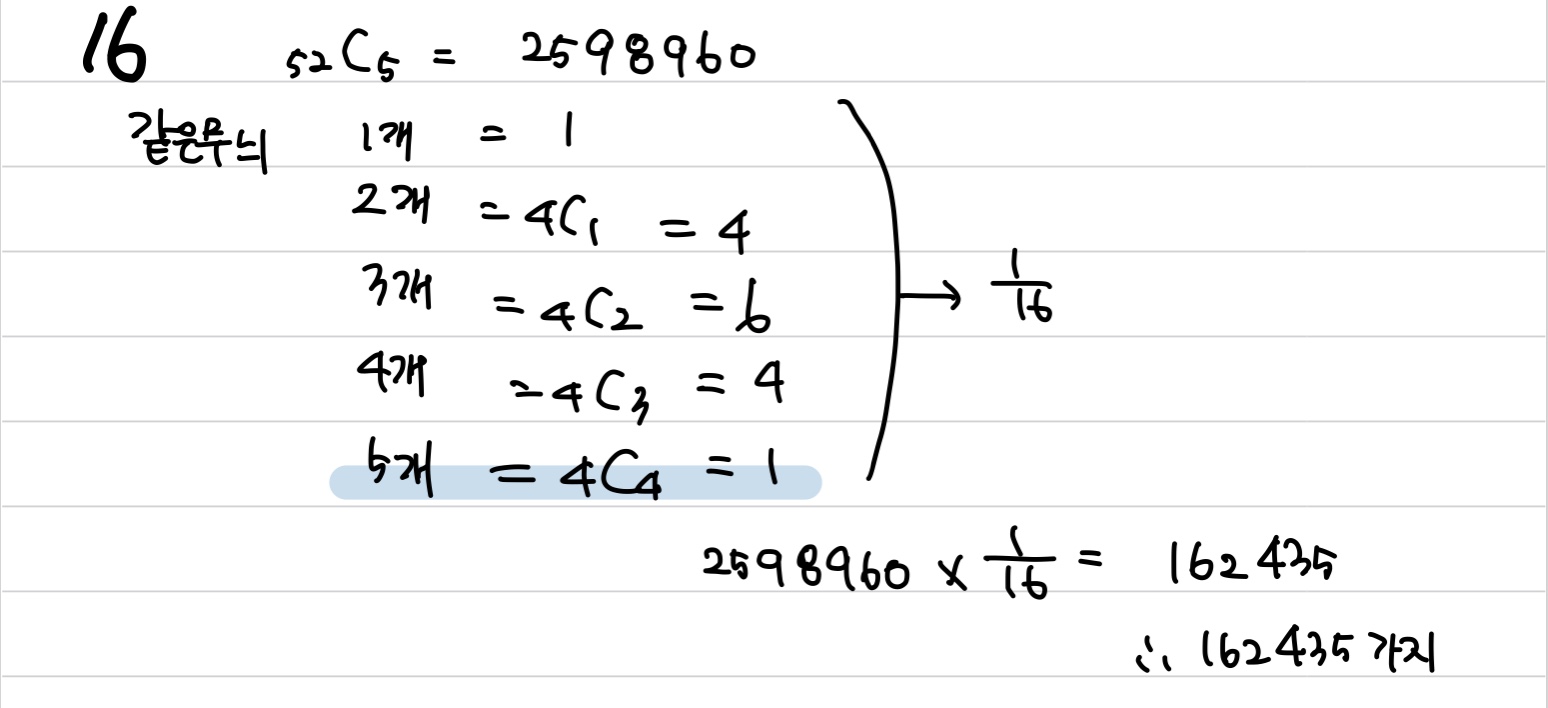 16 52C5 = 2598960
같은무늬 1개 = 1
2개 = 4C1 = 4
3개 = 4C2 = 6
4개 = 4C3 = 4
5개 = 4C4 = 1
→ 1/16
2598960 × 1/16 = 162435
∴ 162435 가지